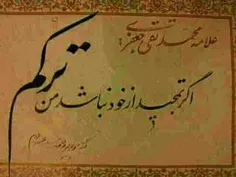 علامه محمد تقی جعفری:
اگر تمجید از خود نباشد من
ترکم